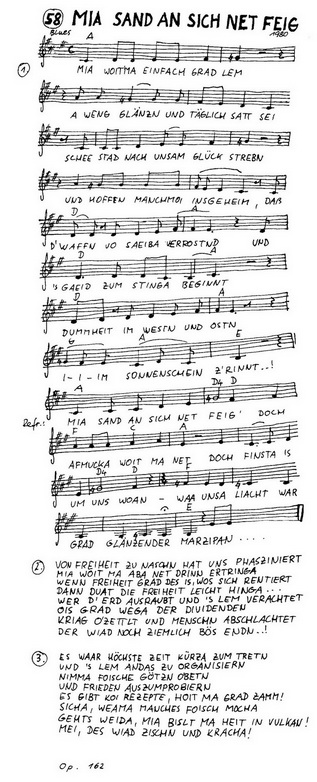 58 MIA SAND AN SICH NET FEIG
Blues A 1980
1 MIA WOITMA EINFACH GRAD LEM
A WENG GLÄNZN UND TÄGLICH SATT SEI
SCHEE STAD NACH UNSAM GLÜCK STREBN
UND HOFFEN MANCHMOI INSGEHEIM, DAß
D A
D'WAFFN VO SAEIBA VERROSTND UND
D A
'S GAEID ZUM STINGA BEGINNT
D A
DUMMHEIT IM WESTN UND OSTN
G A E
I-I-IM SONNENSCHEIN Z'RINNT..!
A D4 D
Refr.: MIA SAND AN SICH NET FEIG' DOCH
F C A
AFMUCKA WOIT MA NET DOCH FINSTA IS
D4 D E
UM UNS WOAN - WAA UNSA LIACHT WAR
E
GRAD GLÄNZENDER MARZIPAN .....
2 VON FREIHEIT ZU NASCHN HAT UNS PHASZINIERT
MIA WOIT MA ABA NET DRINN ERTRINGA
WENN FREIHEIT GRAD DES IS, WOS SICH RENTIERT
DANN DUAT DIE FREIHEIT LEICHT HINGA...
WER D'ERD AUSRAUBT UND 'S LEM VERACHTET
OIS GRAD WEGA DER DIVIDENDEN
KRIAG O'ZETTLT UND MENSCHN ABSCHLACHTET
DER WIAD NOCH ZIEMLICH BÖS ENDN..!
3 ES WAAR HÖCHSTE ZEIT KÜRZA ZUM TRETN
UND 'S LEM ANDAS ZU ORGANISIERN
NIMMA FOISCHE GÖTZN OBETN
UND FRIEDEN AUSZUMPROBIERN
ES GIBT KOI REZEPTE, HOIT MA GRAD ZAMM!
SICHA, WEAMA MANCHES FOISCH MOCHA
GEHTS WEIDA, MIA BISLT MA HEIT IN VULKAN!
MEI, DES WIAD ZISCHN UND KRACHA!
Op. 162